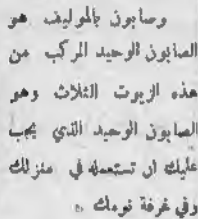 وصابون بالموليف هو
الصابون الوحيد المركب من
هذه الزيوت الثلاث وهو
الصابون الوحيد الذي يجب
عليك ان تستعمله في منزلك
وفي غرفة نومك